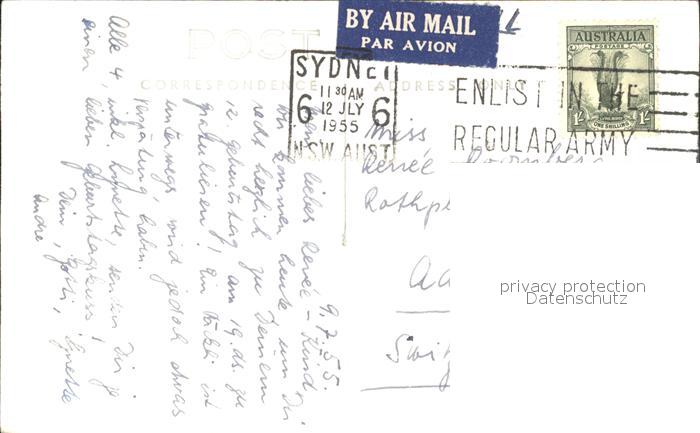 BY AIR MAIL
PAR AVION
AUSTRALIA
POSTAGE
1/- ONE SHILLING 1/-
POST
CORRESPONDENCE ADDRESS ONLY
SYDNEY
11 30 AM
6 12 JLY 6
1955
NSW AUST
ENLIST IN THE
REGULAR ARMY
Miss
Renée
Rothpl
Aa
privacy protection
Datenschutz
9.7.55.
Mein liebes Reneé-Kind,
Wir kommen heute um Dir
recht herzlich zu Deinem
12. Geburtstag am 19. ds. zu
gratulieren! Ein Päckli ist
unterwegs, wird jedoch etwas
Verspätung haben.
Alle 4, inkl. senden Dir je
einen lieben Geburtstagskuss!
Dein Götti,
André